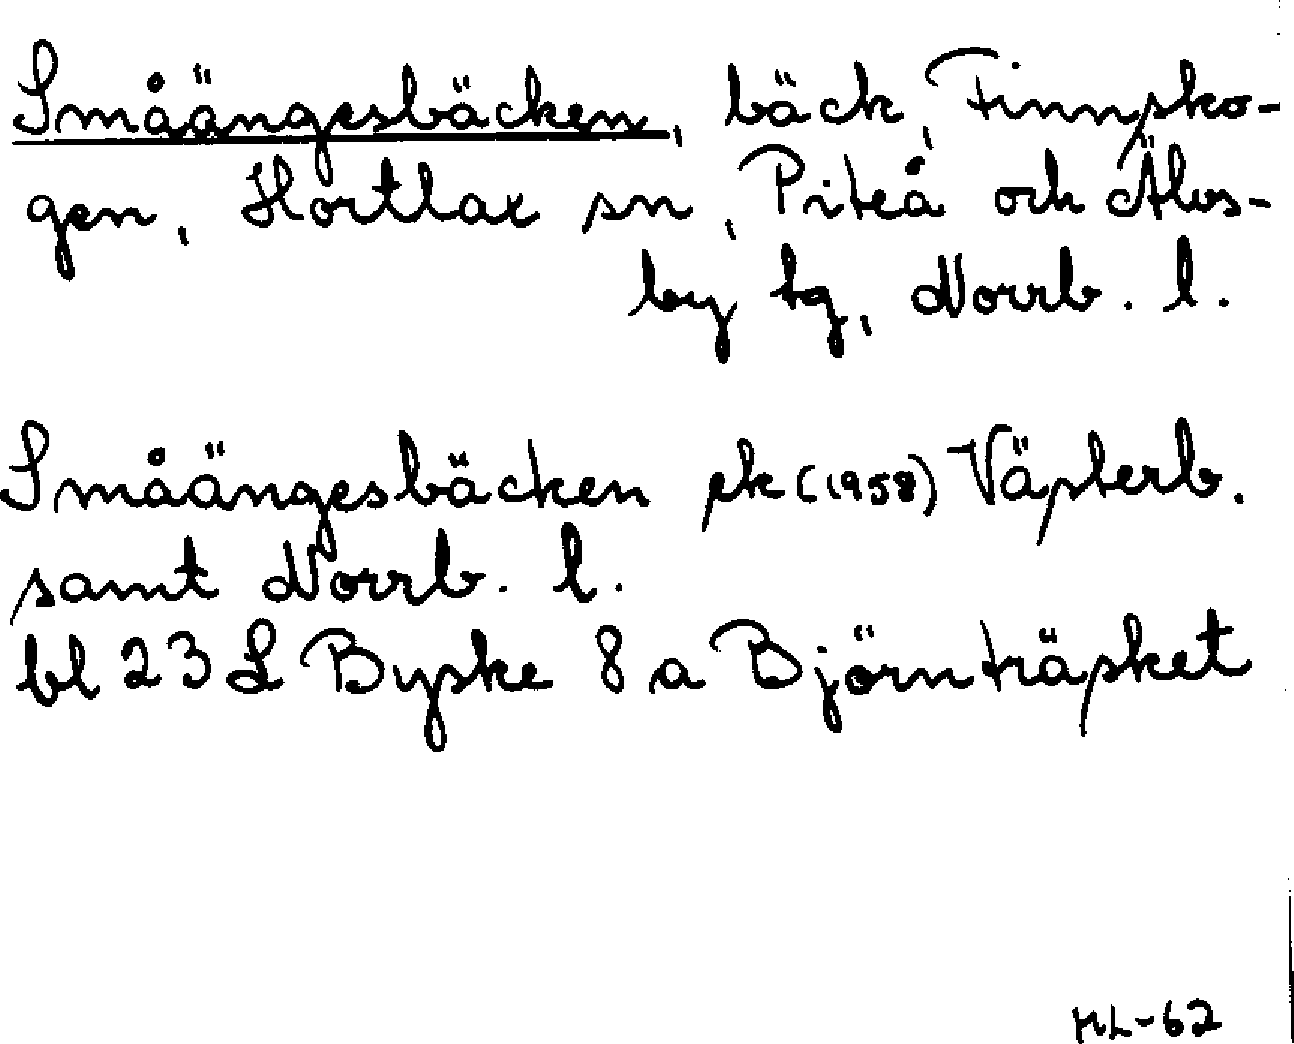 Småängesbäcken, bäck, Finnsko-
gen, Hortlax sn, Piteå och Älvs-
by tg, Norrb. l.
Småängesbäcken ek (1958) Västerb.
samt Norrb. l.
bl 23 L Byske 8 a Björnträsket
HL-62